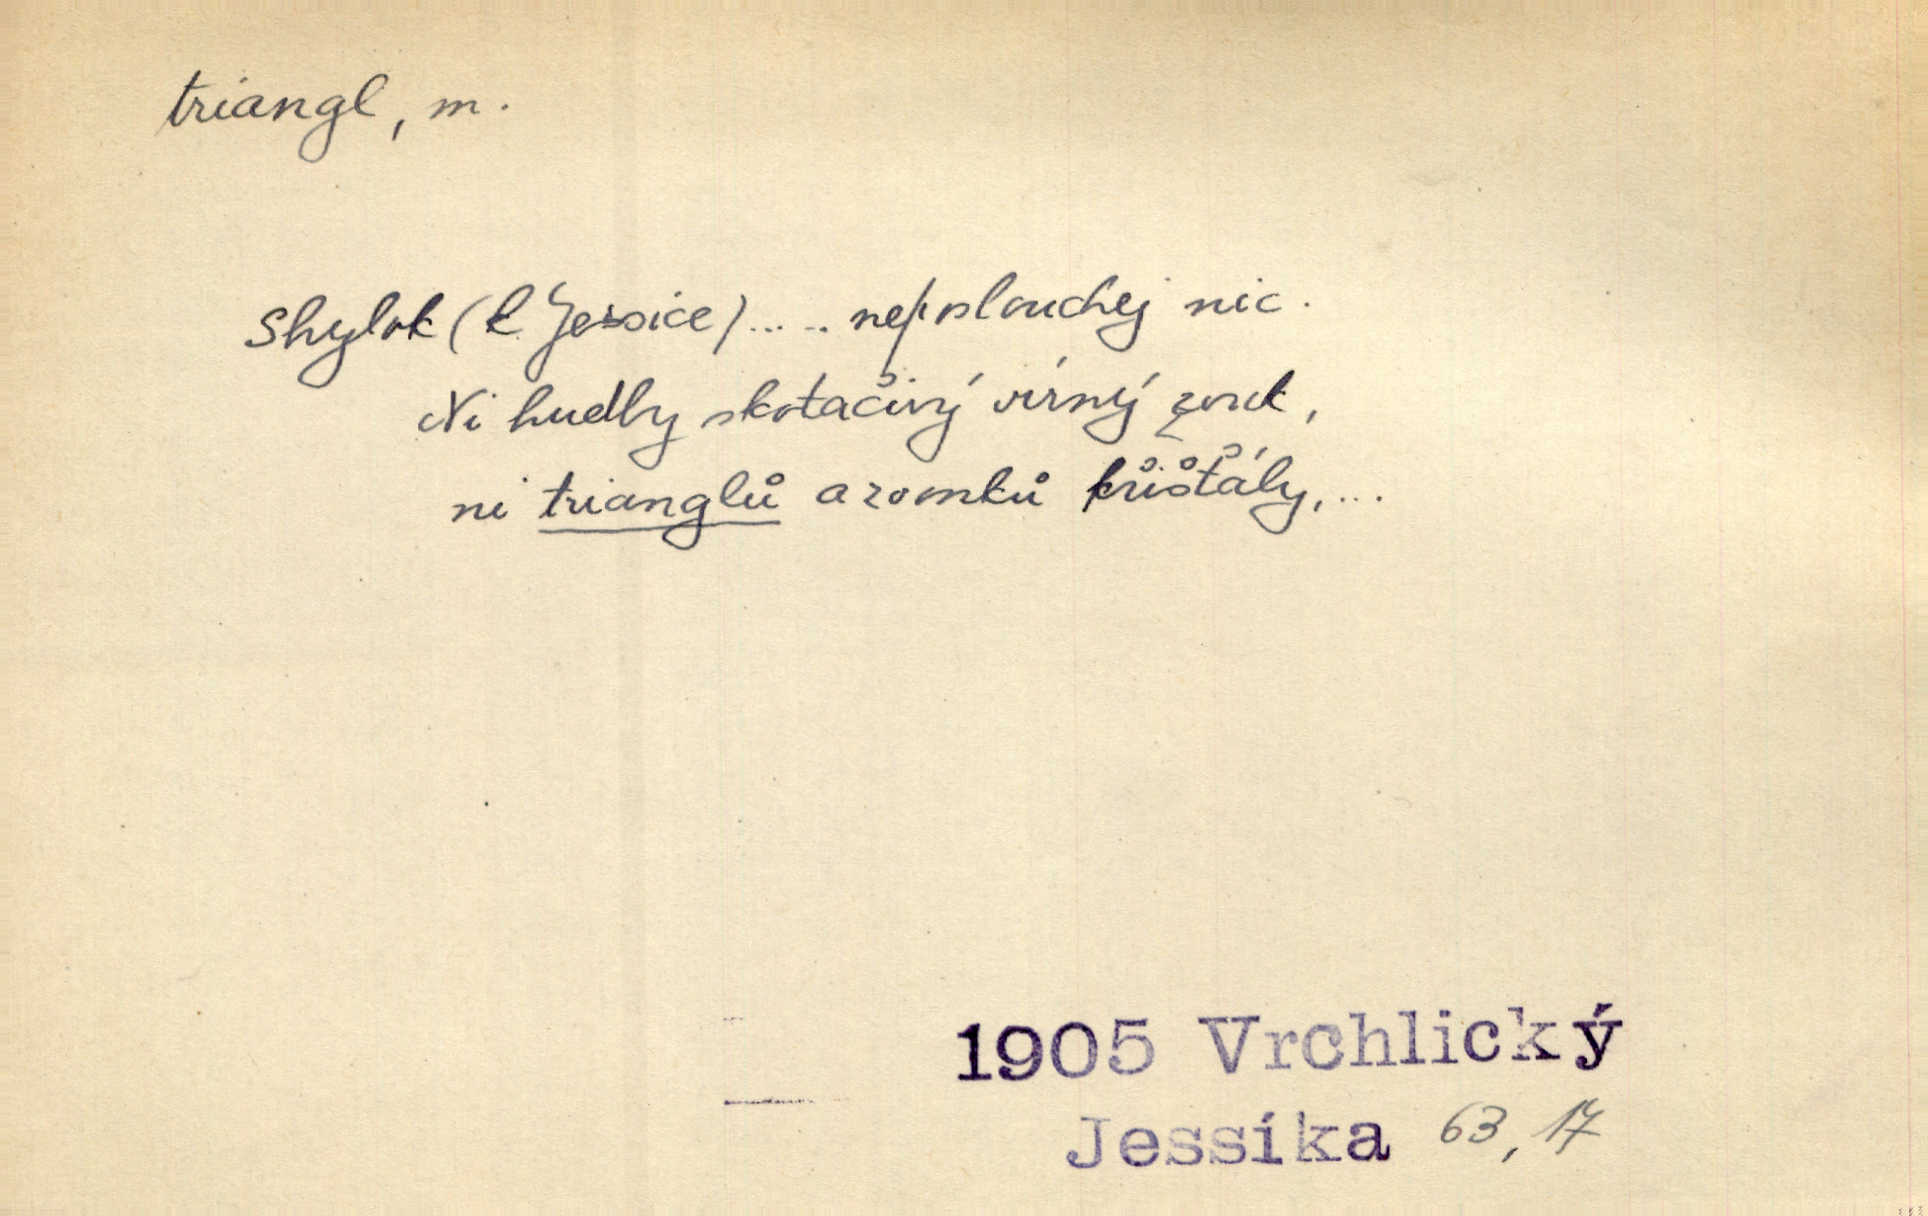 triangl, m.
Shylok (k Jessice)..... neposlouchej nic.
Ni hudby skotačivý vírný zvuk,
ni trianglů a zvonků křišťály,...
1905 Vrchlický
Jessika 63, 17